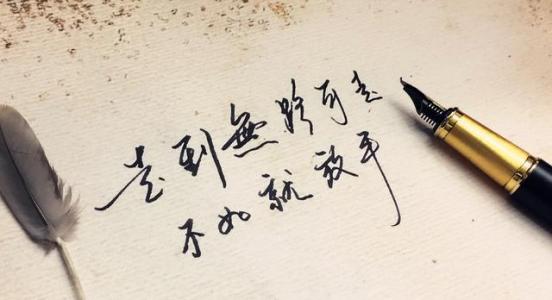 走到無路可走
不如就放手